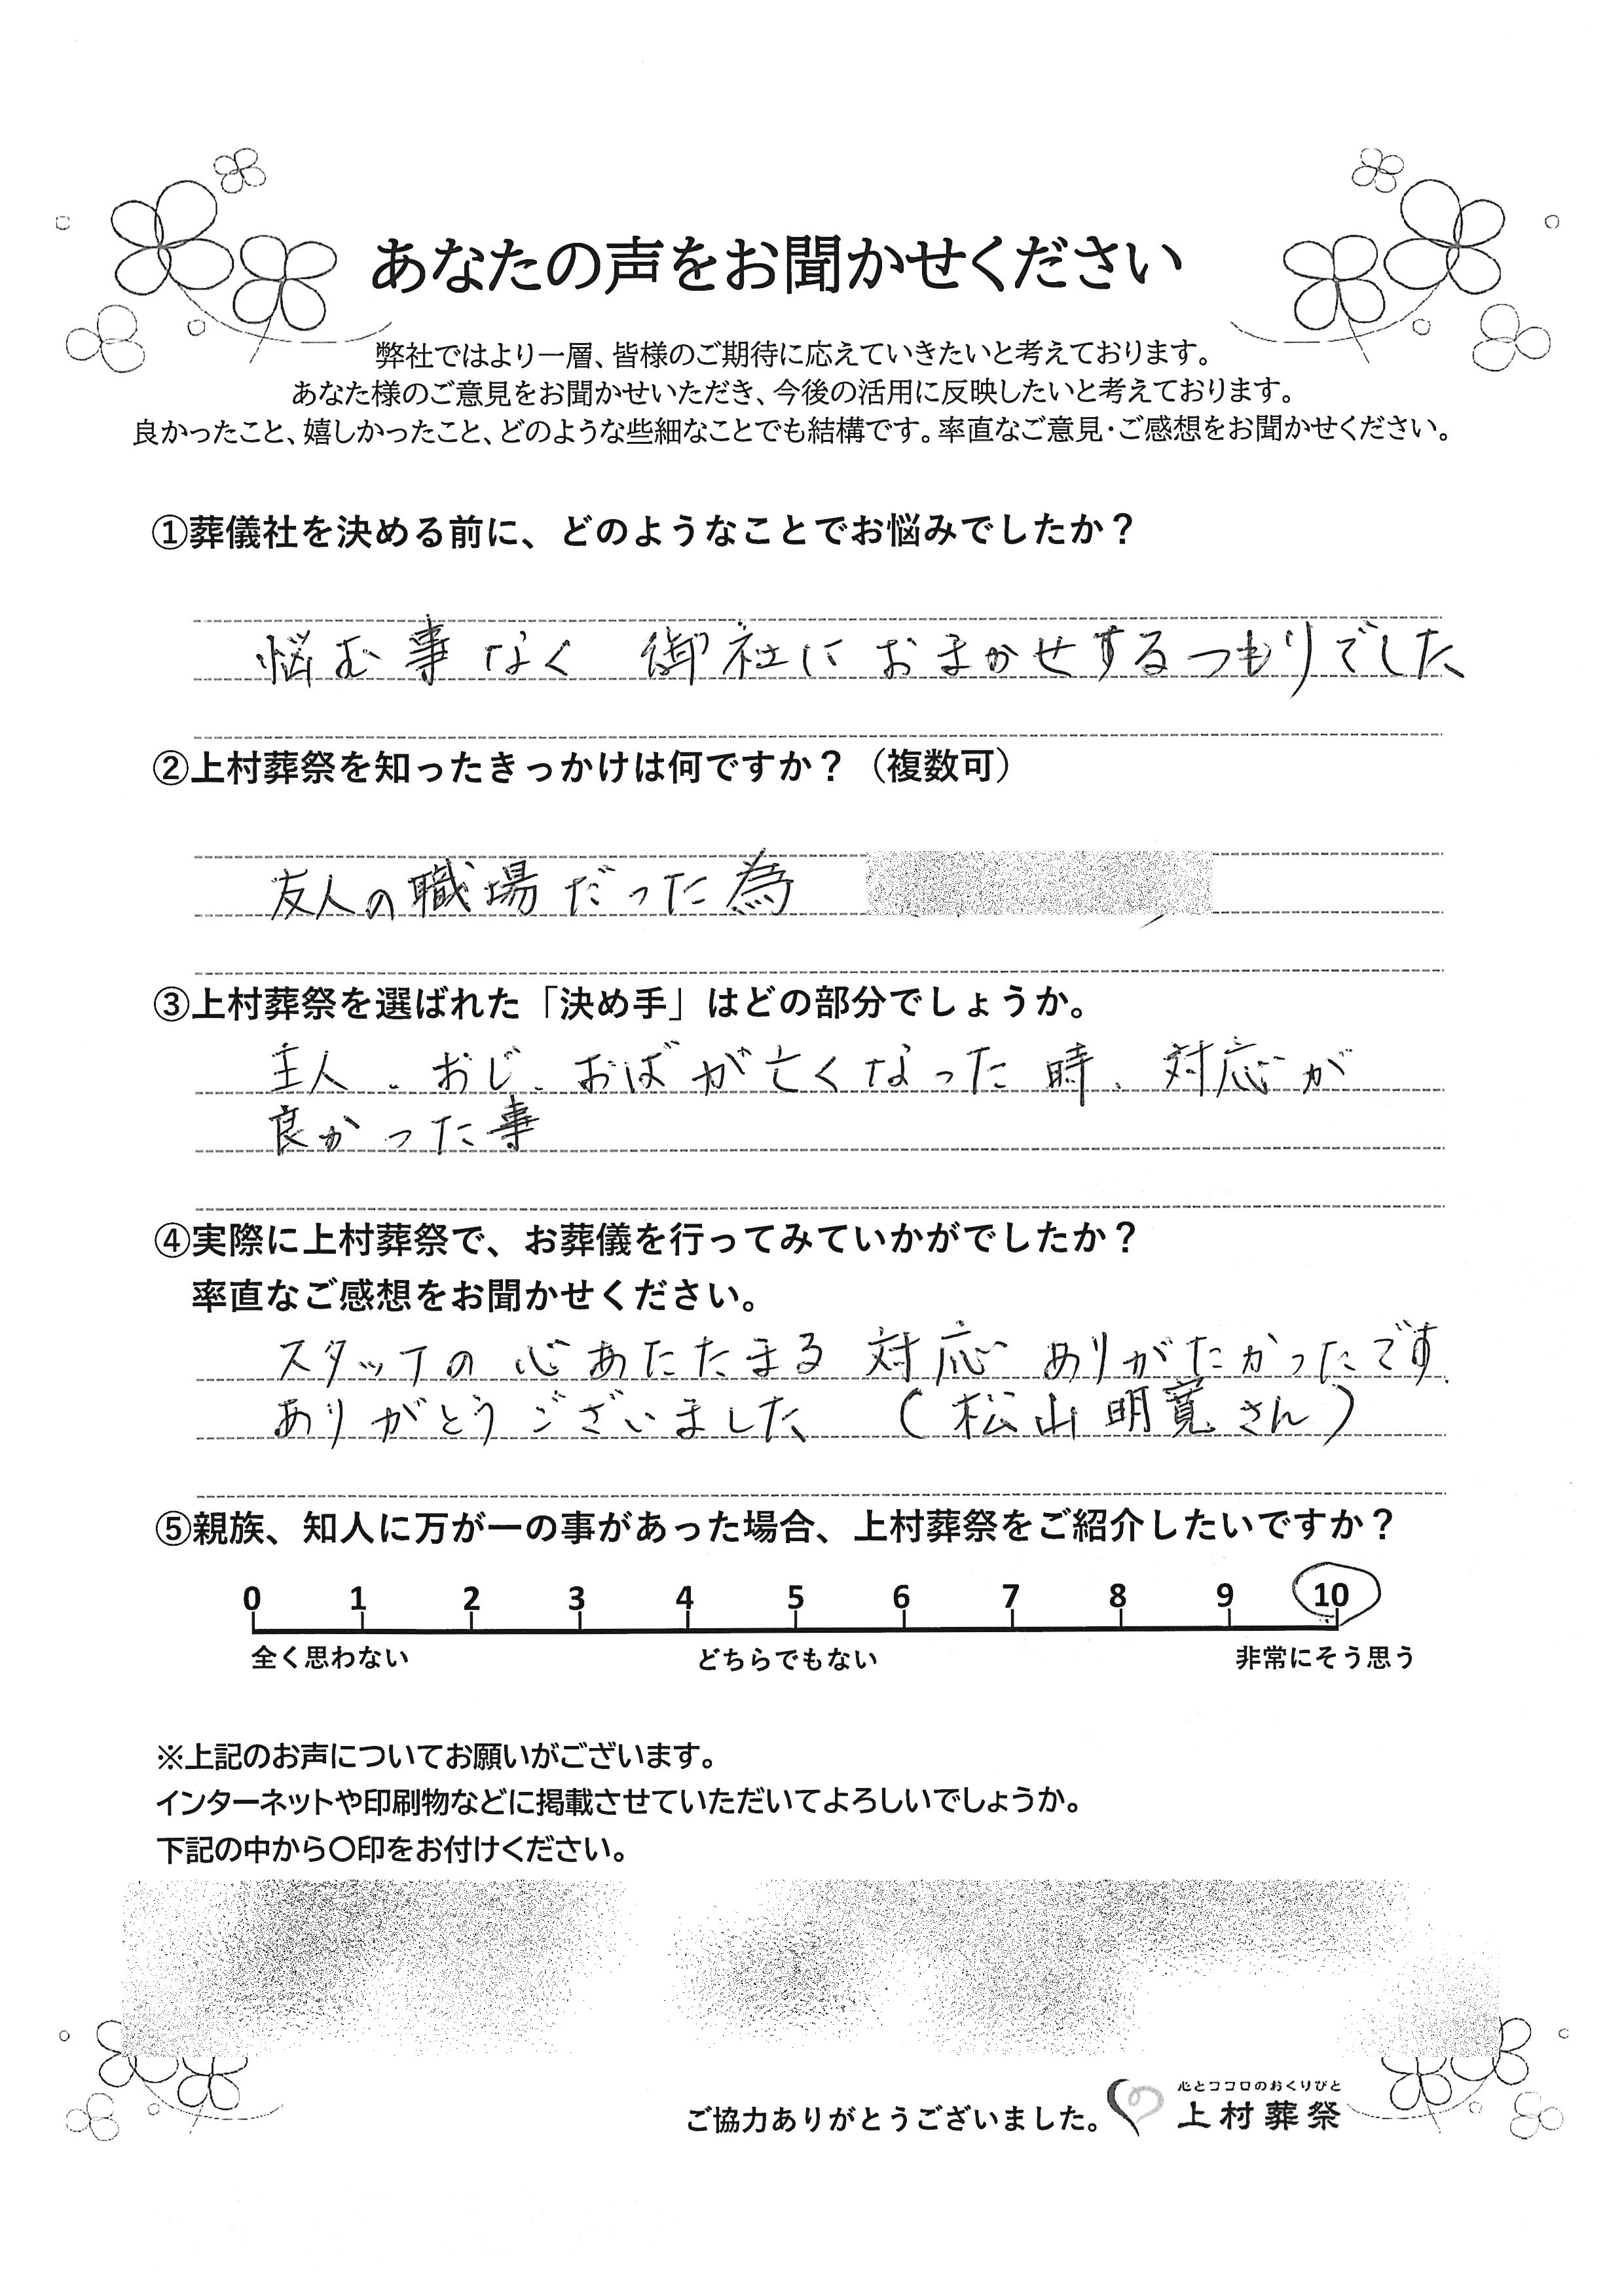 あなたの声をお聞かせください
弊社ではより一層、皆様のご期待に応えていきたいと考えております。
あなた様のご意見をお聞かせいただき、今後の活用に反映したいと考えております。
良かったこと、嬉しかったこと、どのような些細なことでも結構です。率直なご意見・ご感想をお聞かせください。
①葬儀社を決める前に、どのようなことでお悩みでしたか？
悩む事なく 御社に おまかせするつもりでした
②上村葬祭を知ったきっかけは何ですか？（複数可）
友人の職場だった為
③上村葬祭を選ばれた「決め手」はどの部分でしょうか。
主人、おじ、おばが亡くなった時、対応が
良かった事
④実際に上村葬祭で、お葬儀を行ってみていかがでしたか？
率直なご感想をお聞かせください。
スタッフの 心あたたまる 対応 ありがたかったです。
ありがとうございました （松山明寛さん）
⑤親族、知人に万が一の事があった場合、上村葬祭をご紹介したいですか？
0 1 2 3 4 5 6 7 8 9 10
全く思わない どちらでもない 非常にそう思う
※上記のお声についてお願いがございます。
インターネットや印刷物などに掲載させていただいてよろしいでしょうか。
下記の中から〇印をお付けください。
心とココロのおくりびと
ご協力ありがとうございました。 上村葬祭